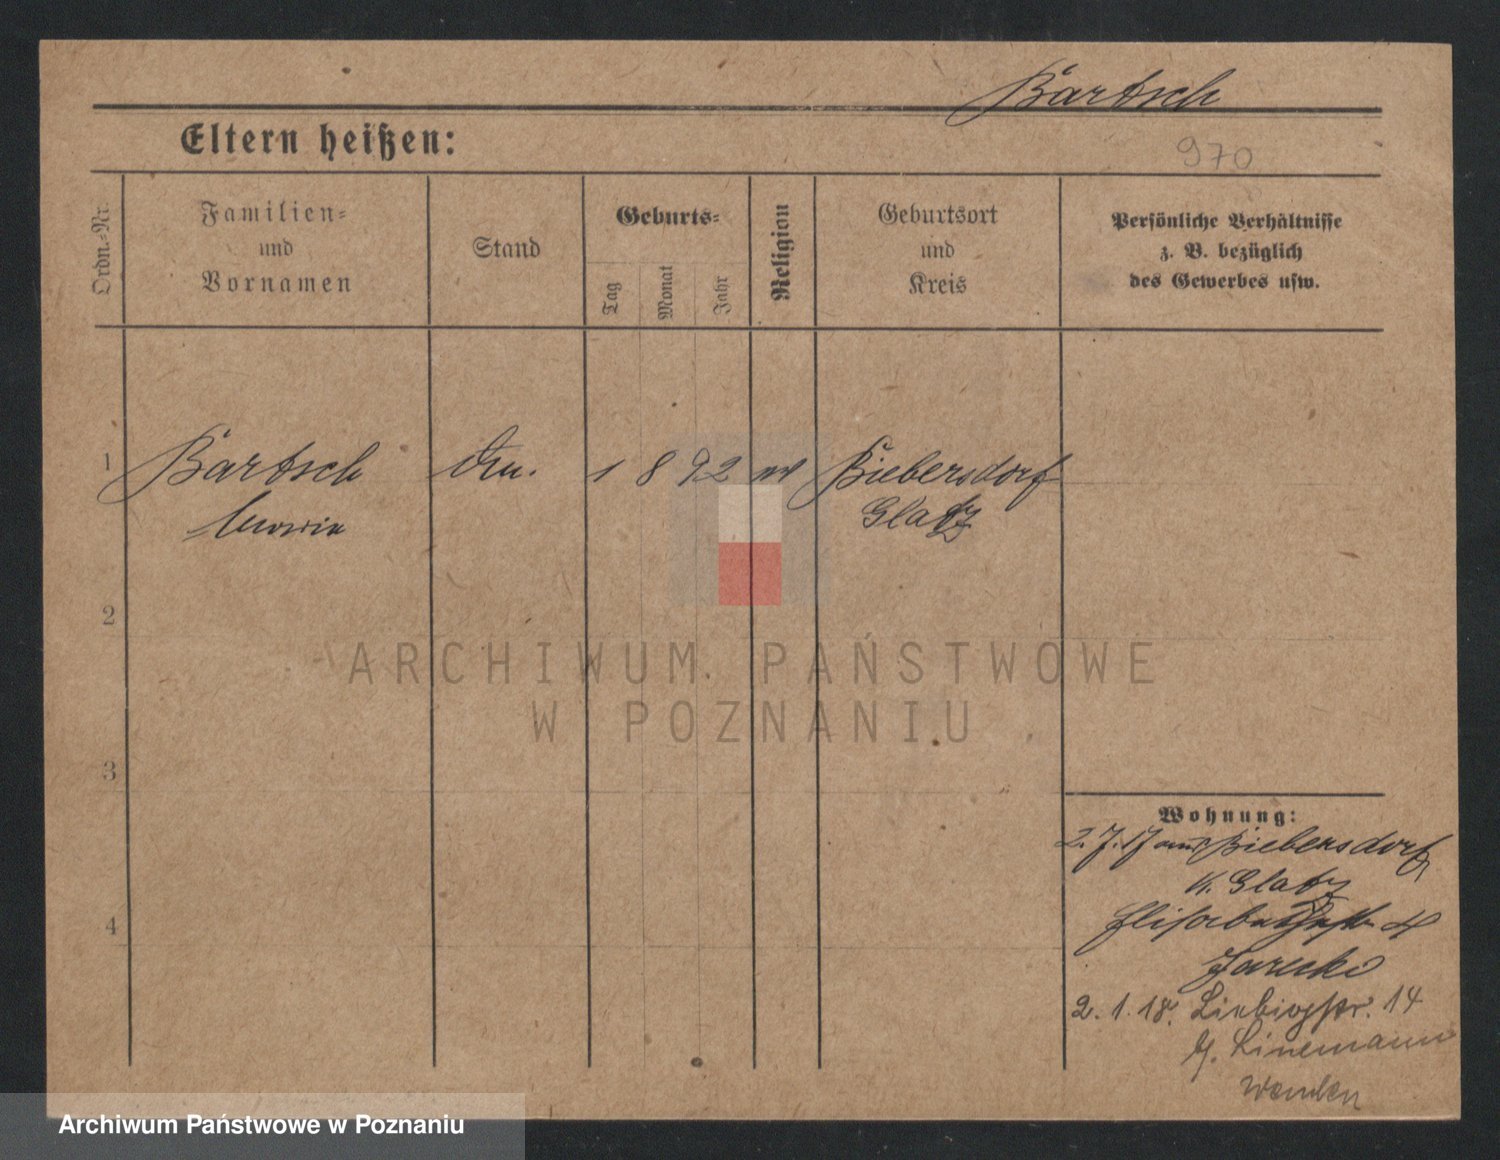 Bartsch
Eltern heißen:
970
Ordn.-Nr.
Familien-
und
Vornamen
Stand
Geburts-
Tag
Monat
Jahr
Religion
Geburtsort
und
Kreis
Persönliche Verhältnisse
z. B. bezüglich
des Gewerbes usw.
1 Bartsch 1 8 92 Biebersdorf
Glatz
2
ARCHIWUM PAŃSTWOWE
W POZNANIU
3
Wohnung:
2. 7. 17 aus Biebersdorf
K. Glatz
4
Elisabethstr 4
Jarecki
2. 1. 18. Liebigstr. 14
b. Linemann
Archiwum Państwowe w Poznaniu